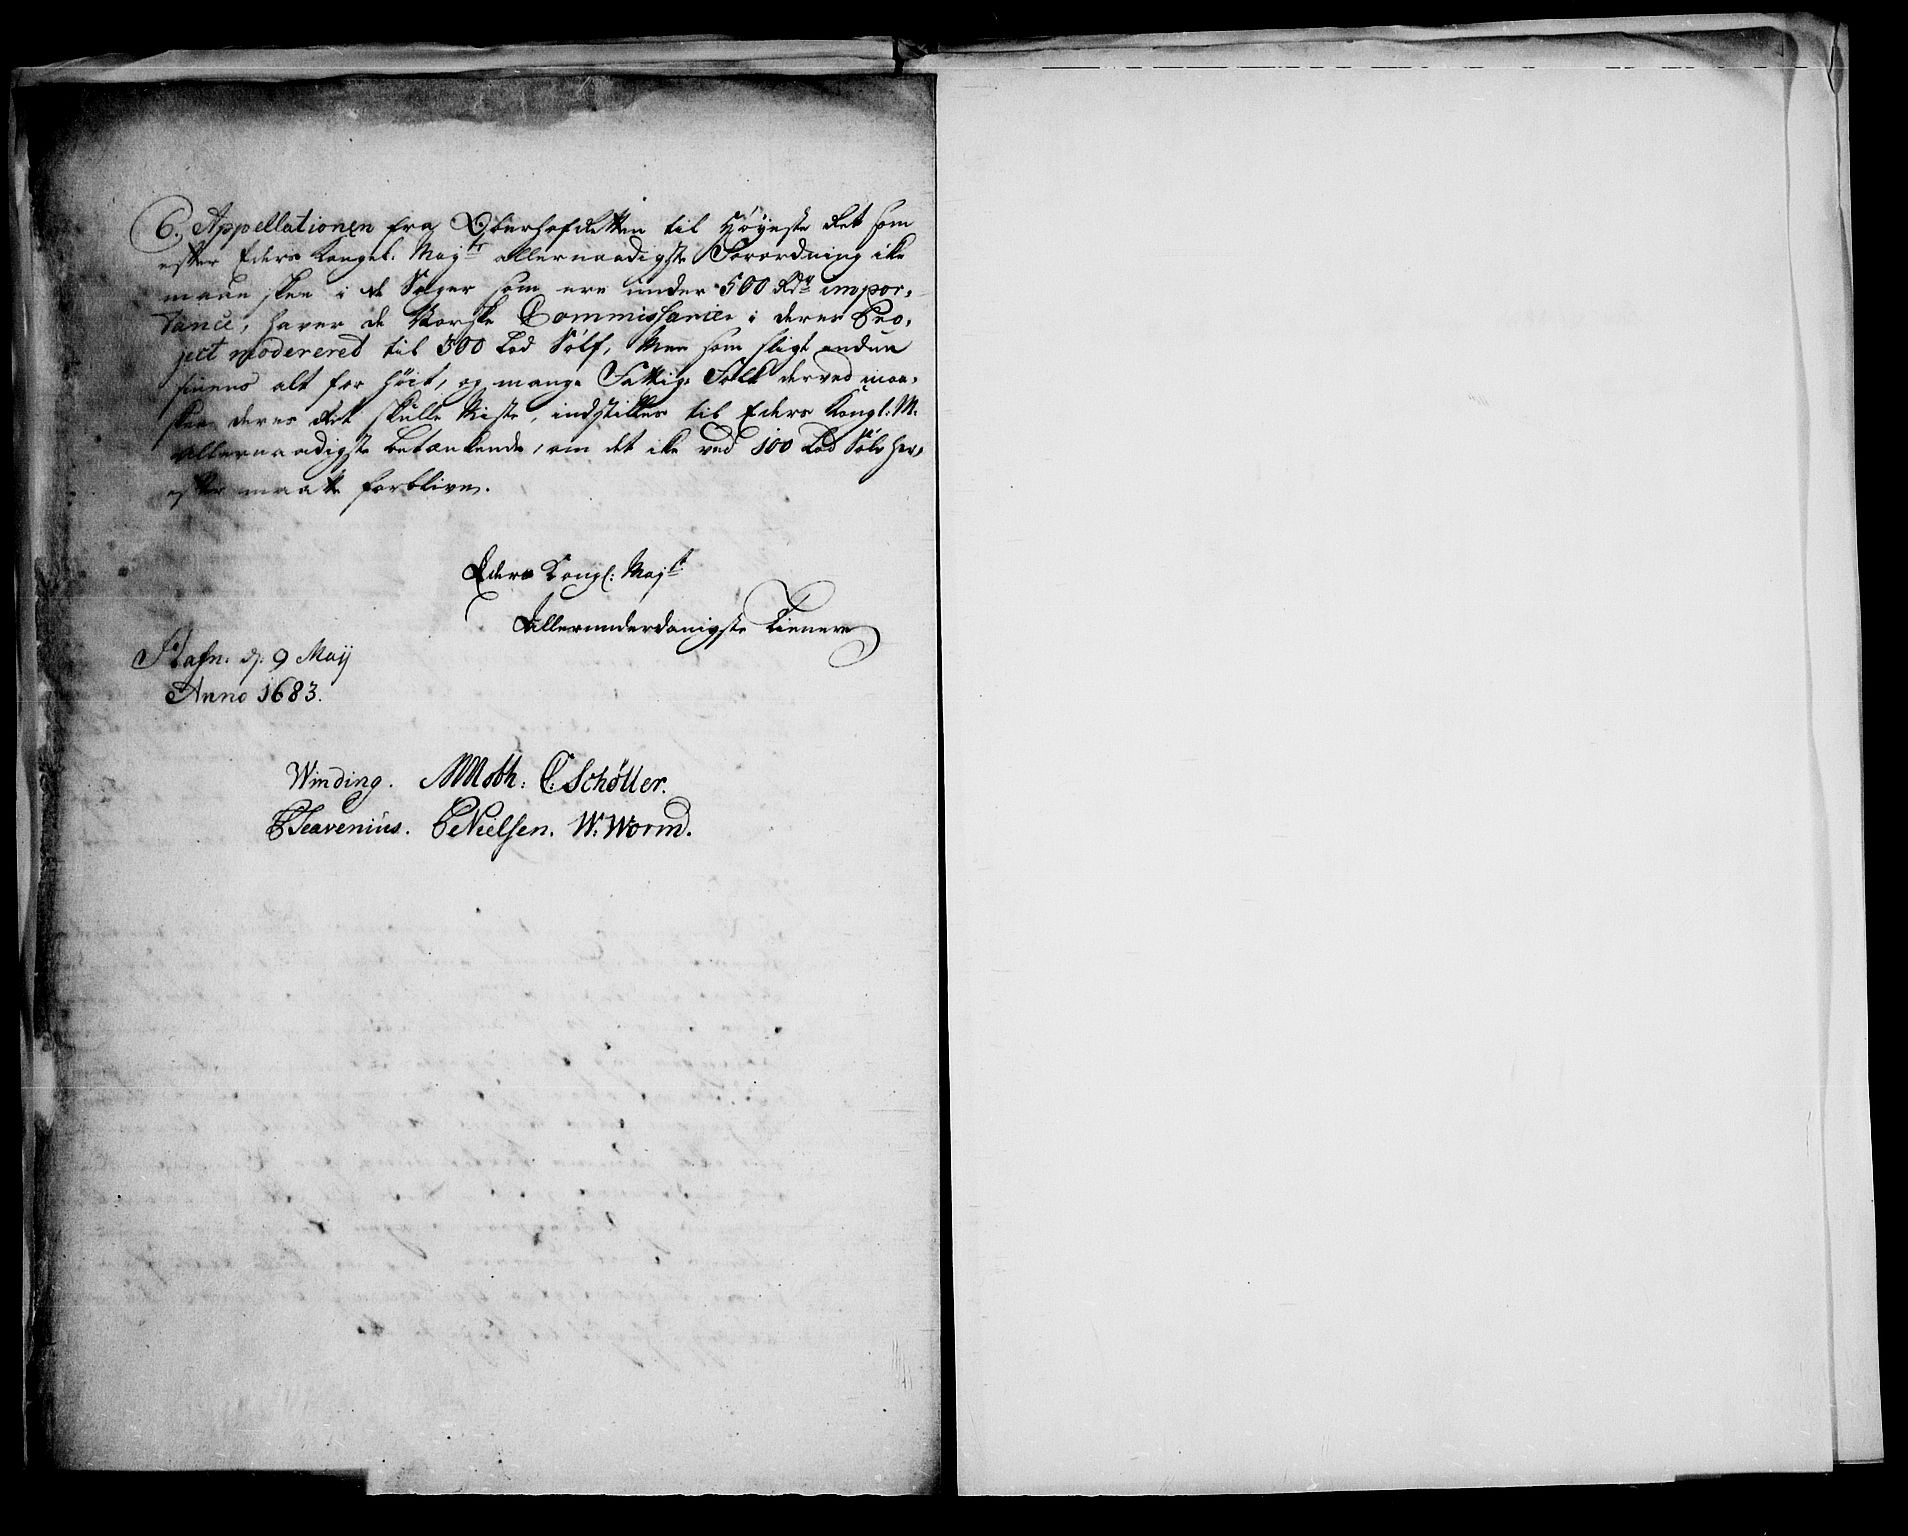 6. Appellationen fra Oberhofretten til Høyeste Ret som
efter Eders Kongel: Mayts allernaadigste Forordning ike
maae skee i de Sager som ere under 500 Rdr impor,
tance, haver de Norske Commissarier i deres Pro,
ject modereret til 300 Lod Sølf, Men som sligt endnu
siunes alt for høit, og mange Fattige Folk derved maa,
skee deres Ret skulle Miste, indstilles til Eders Kongl: M:
allernaadigste betænkende, om det ike ved 100 Lod Sølv her,
efter maatte forblive.
Eders Kongl: Mayts
Allerunderdanigste Tienere
Hafn. d: 9 Maij
Anno 1683.
Winding. MMoth: C: Schøller.
PScavenius. CNielsen. W: Worm.